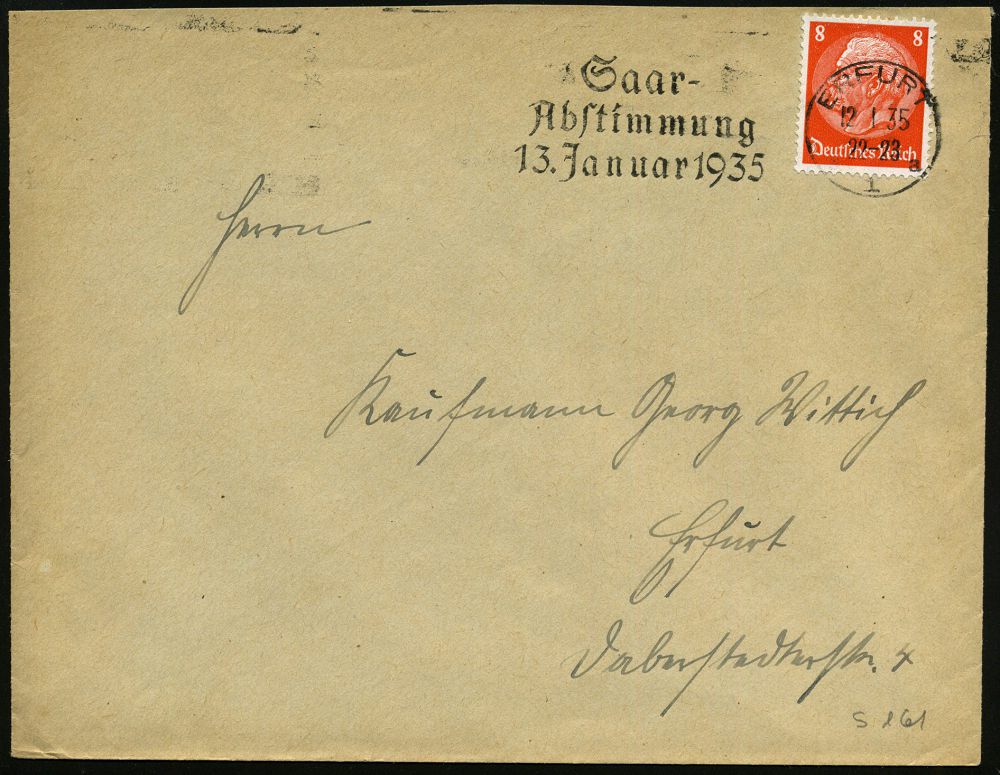 8 8
Deutsches Reich
ERFURT
12 1 35
22-23
a
1
Saar-
Abstimmung
13. Januar 1935
Herrn
Kaufmann Georg Wittich
Erfurt
Daberstedterstr. 4